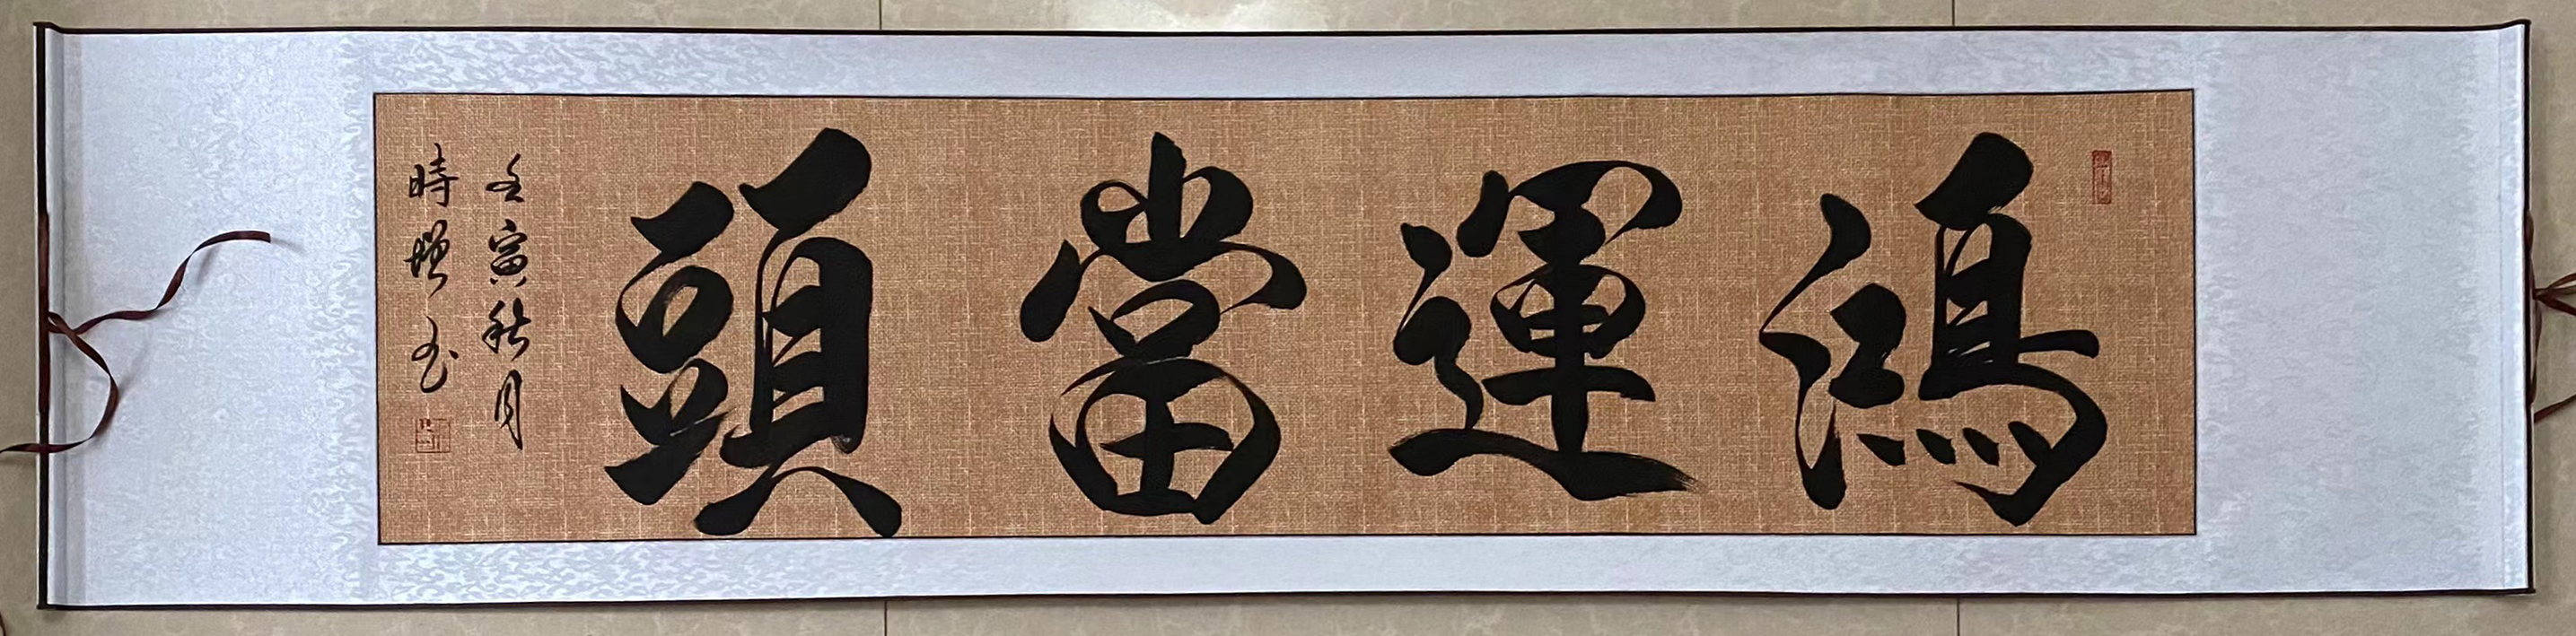 鴻運當頭
壬寅秋月
時增书